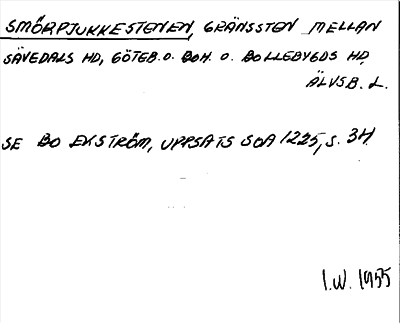 SMÖRPJUKKESTENEN, GRÄNSSTEN MELLAN
SÄVEDALS HD, GÖTEB. O. BOH. O. BOLLEBYGDS HD,
ÄLVSB. L.
SE BO EKSTRÖM, UPPSATS SOA 1225, S. 34.
I.W. 1955